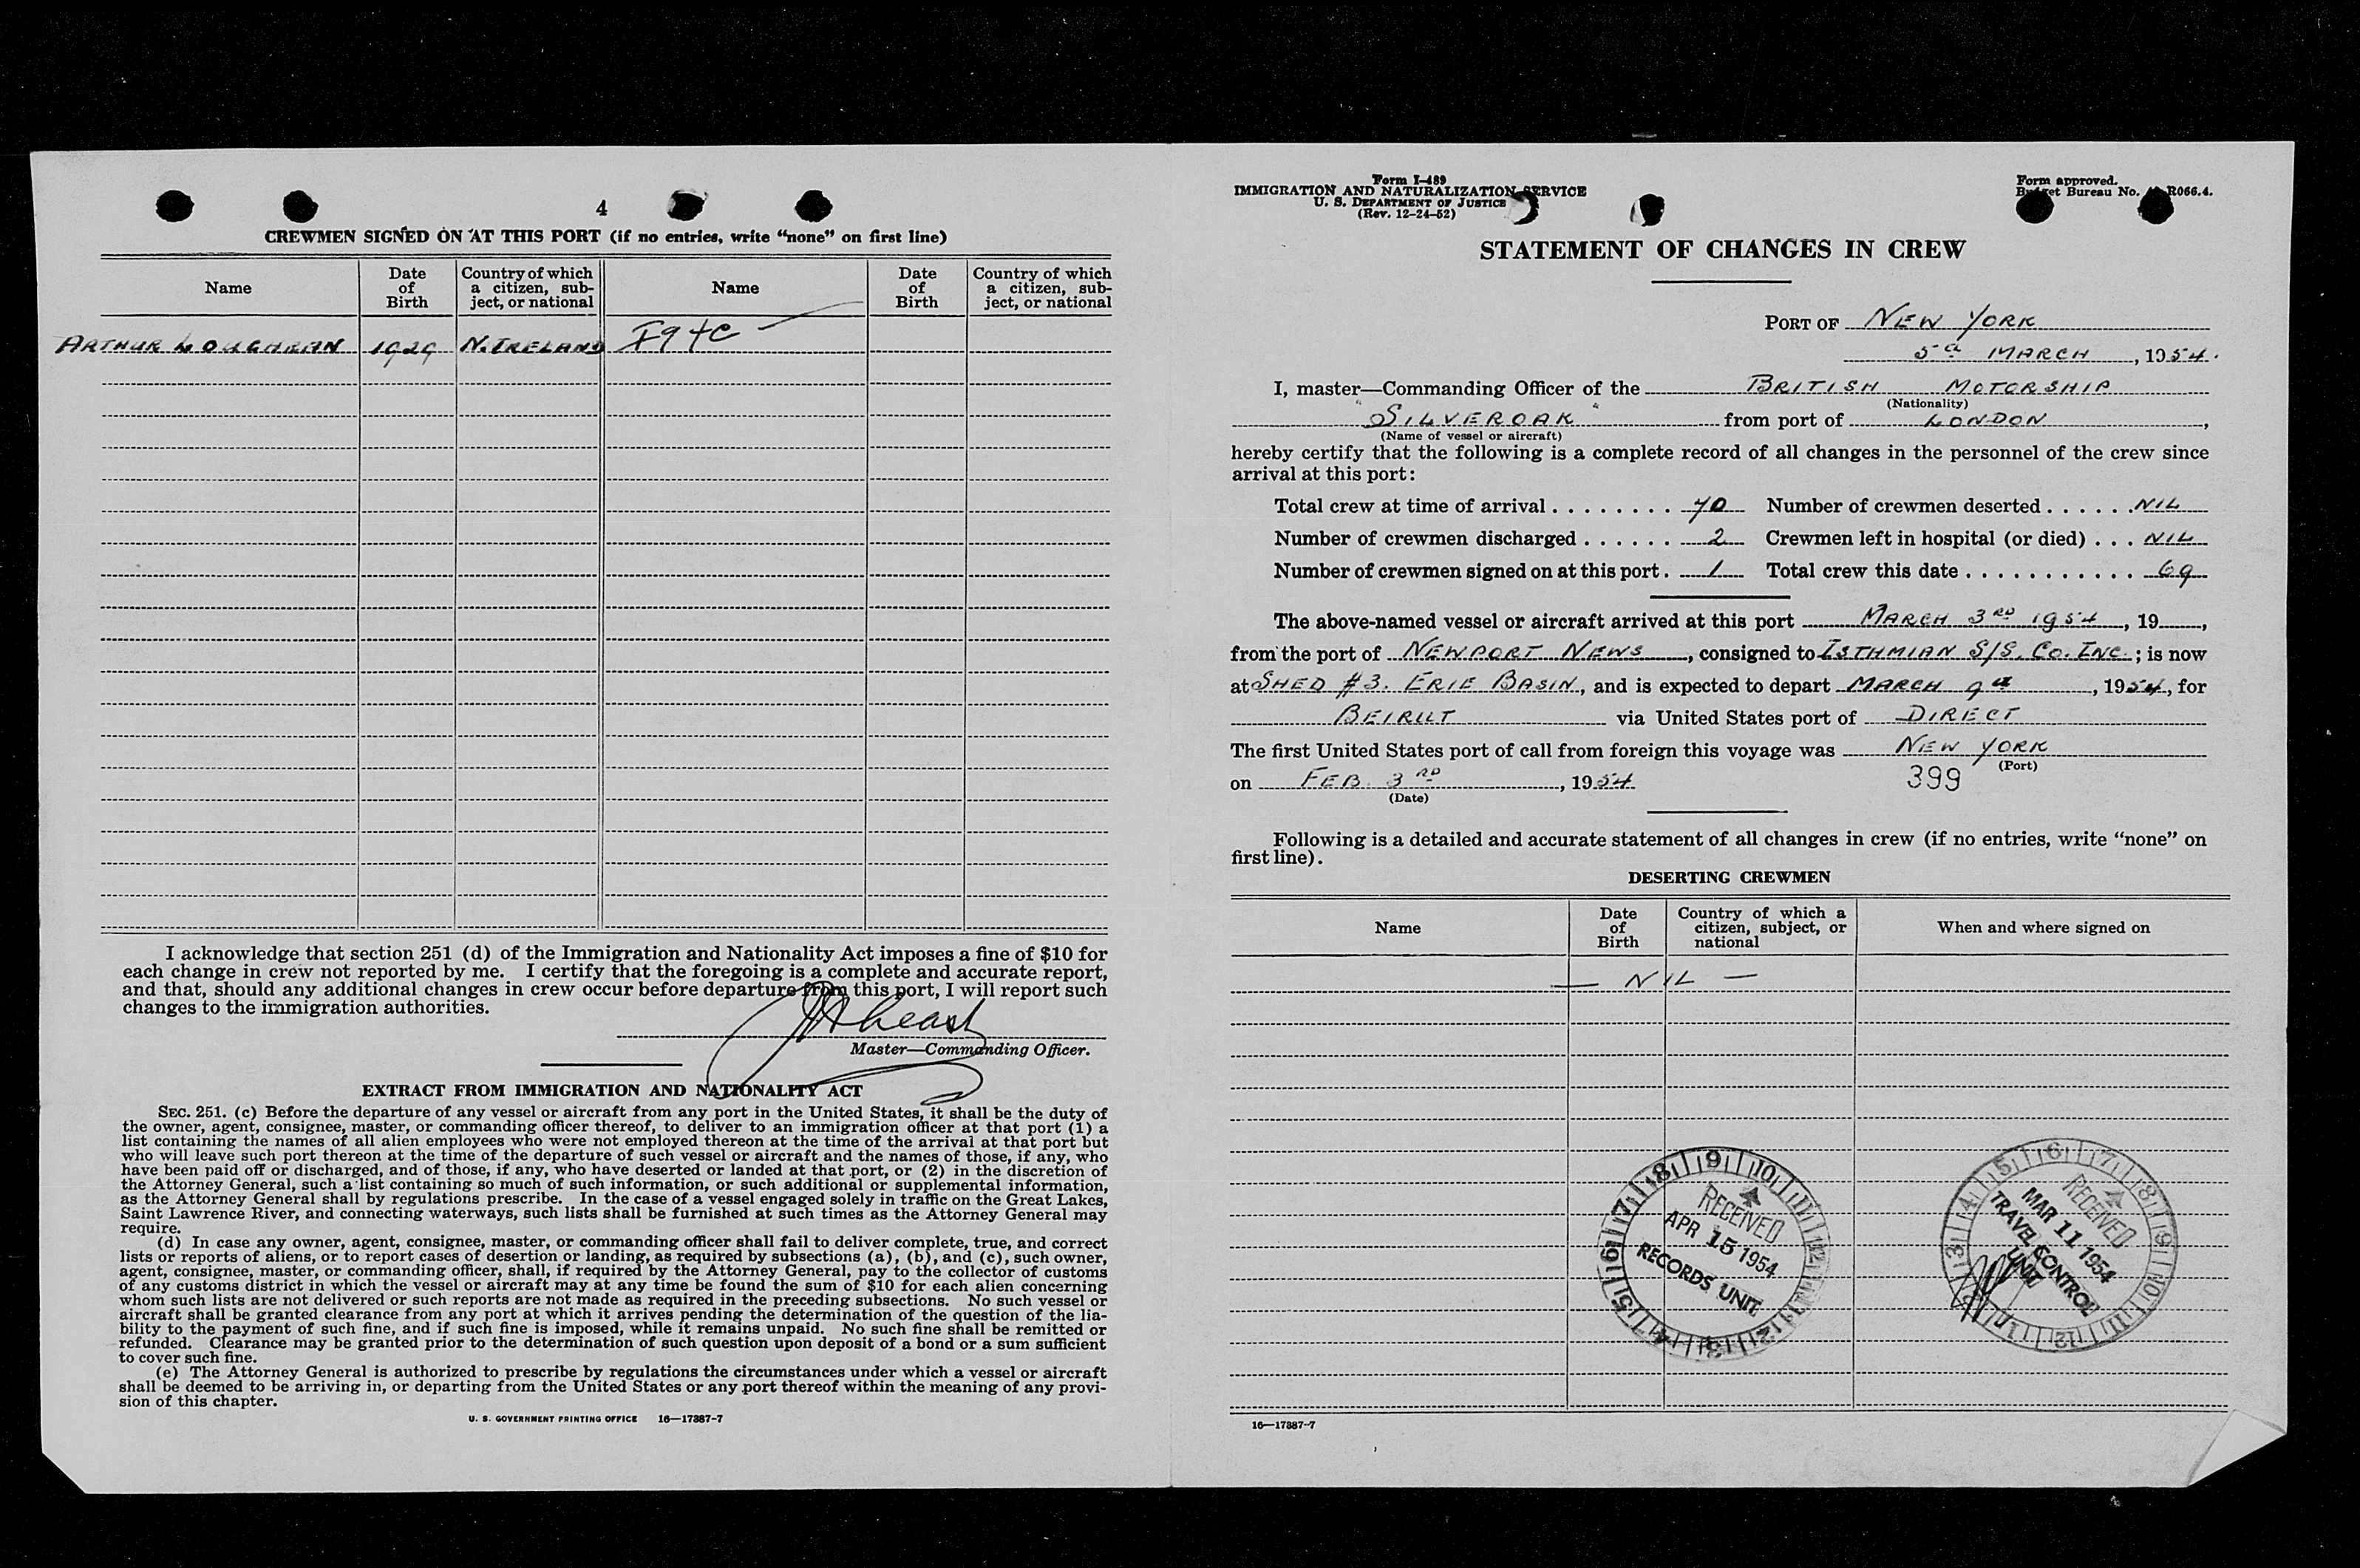 4
CREWMEN SIGNED ON AT THIS PORT (if no entries, write “none” on first line)
Name | Date of Birth | Country of which a citizen, subject, or national | Name | Date of Birth | Country of which a citizen, subject, or national
ARTHUR LOUGHRAN 1929 N. IRELAND
I acknowledge that section 251 (d) of the Immigration and Nationality Act imposes a fine of $10 for
each change in crew not reported by me. I certify that the foregoing is a complete and accurate report,
and that, should any additional changes in crew occur before departure from this port, I will report such
changes to the immigration authorities.
Master—Commanding Officer.
EXTRACT FROM IMMIGRATION AND NATIONALITY ACT
SEC. 251. (c) Before the departure of any vessel or aircraft from any port in the United States, it shall be the duty of
the owner, agent, consignee, master, or commanding officer thereof, to deliver to an immigration officer at that port (1) a
list containing the names of all alien employees who were not employed thereon at the time of the arrival at that port but
who will leave such port thereon at the time of the departure of such vessel or aircraft and the names of those, if any, who
have been paid off or discharged, and of those, if any, who have deserted or landed at that port, or (2) in the discretion of
the Attorney General, such a list containing so much of such information, or such additional or supplemental information,
as the Attorney General shall by regulations prescribe. In the case of a vessel engaged solely in traffic on the Great Lakes,
Saint Lawrence River, and connecting waterways, such lists shall be furnished at such times as the Attorney General may
require.
(d) In case any owner, agent, consignee, master, or commanding officer shall fail to deliver complete, true, and correct
lists or reports of aliens, or to report cases of desertion or landing, as required by subsections (a), (b), and (c), such owner,
agent, consignee, master, or commanding officer, shall, if required by the Attorney General, pay to the collector of customs
of any customs district in which the vessel or aircraft may at any time be found the sum of $10 for each alien concerning
whom such lists are not delivered or such reports are not made as required in the preceding subsections. No such vessel or
aircraft shall be granted clearance from any port at which it arrives pending the determination of the question of the lia-
bility to the payment of such fine, and if such fine is imposed, while it remains unpaid. No such fine shall be remitted or
refunded. Clearance may be granted prior to the determination of such question upon deposit of a bond or a sum sufficient
to cover such fine.
(e) The Attorney General is authorized to prescribe by regulations the circumstances under which a vessel or aircraft
shall be deemed to be arriving in, or departing from the United States or any port thereof within the meaning of any provi-
sion of this chapter.
U. S. GOVERNMENT PRINTING OFFICE 16—17387-7
Form I-489
IMMIGRATION AND NATURALIZATION SERVICE
U. S. DEPARTMENT OF JUSTICE
(Rev. 12-24-52)
Form approved.
Budget Bureau No. R066.4.
STATEMENT OF CHANGES IN CREW
PORT OF NEW YORK
MARCH, 1954.
I, master—Commanding Officer of the BRITISH MOTORSHIP
(Nationality)
"SILVEROAK" from port of LONDON,
(Name of vessel or aircraft)
hereby certify that the following is a complete record of all changes in the personnel of the crew since
arrival at this port:
Total crew at time of arrival . . . . . . . . 70 Number of crewmen deserted . . . . . . NIL
Number of crewmen discharged . . . . . . 2 Crewmen left in hospital (or died) . . . NIL
Number of crewmen signed on at this port . 1 Total crew this date . . . . . . . . . . . . 69
The above-named vessel or aircraft arrived at this port MARCH 3RD 1954, 19,
from the port of NEWPORT NEWS, consigned to ISTHMIAN S/S. Co. INC.; is now
at SHED #3. ERIE BASIN, and is expected to depart MARCH 9th, 1954, for
BEIRUT via United States port of DIRECT
The first United States port of call from foreign this voyage was NEW YORK
(Port)
on FEB. 3RD, 1954 399
(Date)
Following is a detailed and accurate statement of all changes in crew (if no entries, write “none” on
first line).
DESERTING CREWMEN
Name | Date of Birth | Country of which a citizen, subject, or national | When and where signed on
— NIL —
RECEIVED
APR 15 1954
RECORDS UNIT
RECEIVED
MAR 11 1954
TRAVEL CONTROL
UNIT
16—17387-7